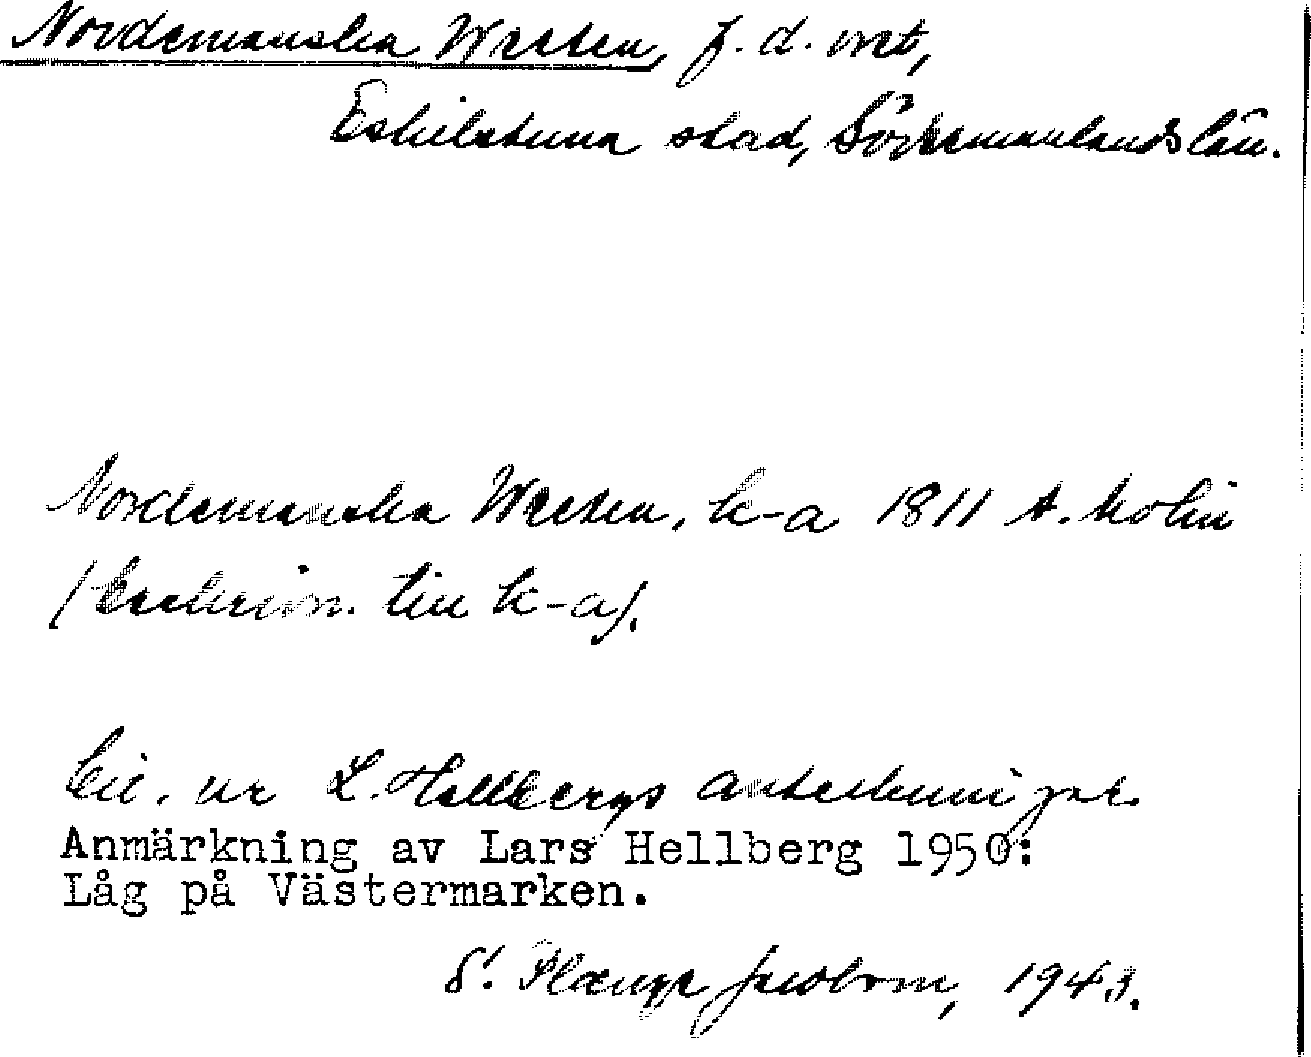 Nordemanska Wreten, f. d. vret,
Eskilstuna stad, Södermanlands län.
Nordemanska Wreten, k-a 1811 A. Molin
(beskrivn. till k-a).
Cit. ur L. Hellbergs anteckningar.
Anmärkning av Lars Hellberg 1950:
Låg på Västermarken.
1943.